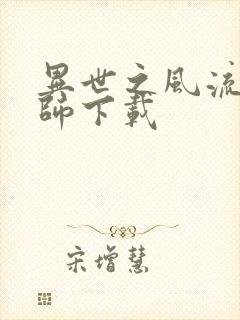 異世之風流
師下載
宋增慧